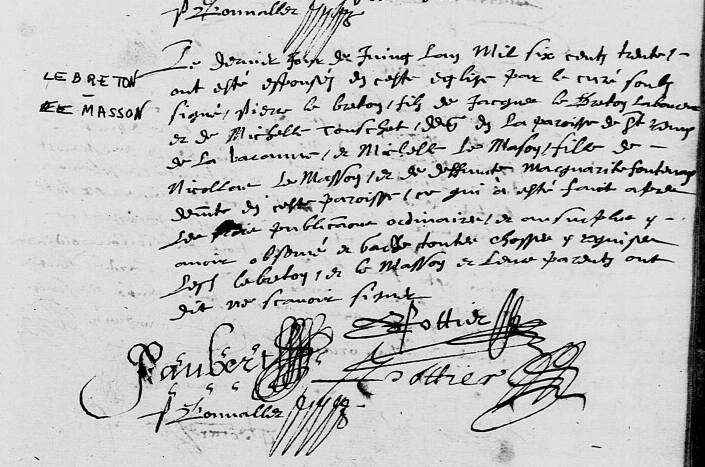 P Bonvallet
Le dernier Jour de Juing Lan Mil six centz trente
LE BRETON
-
LE MASSON
ont esté espousés en ceste eglise par le curé soubz
signé, Pierre le breton, filz de Jacques le Breton Laboureur
et de Michelle Touschet, de la paroisse de St remy
de La varanne, et Michelle Le Mason, fille de
Nicollas Le Masson, et de deffuncte Marguarite fontenay
demte en ceste paroisse, ce qui a esté faict apres
Les trois publicaons ordinaires, et au surplus y
avoir observé et gardé toutes choses y requises
Lesd lebreton, et le Masson et Leurs parents ont
dit ne scavoir signer
Pottier
Paubert
Pottier
P Bonvallet